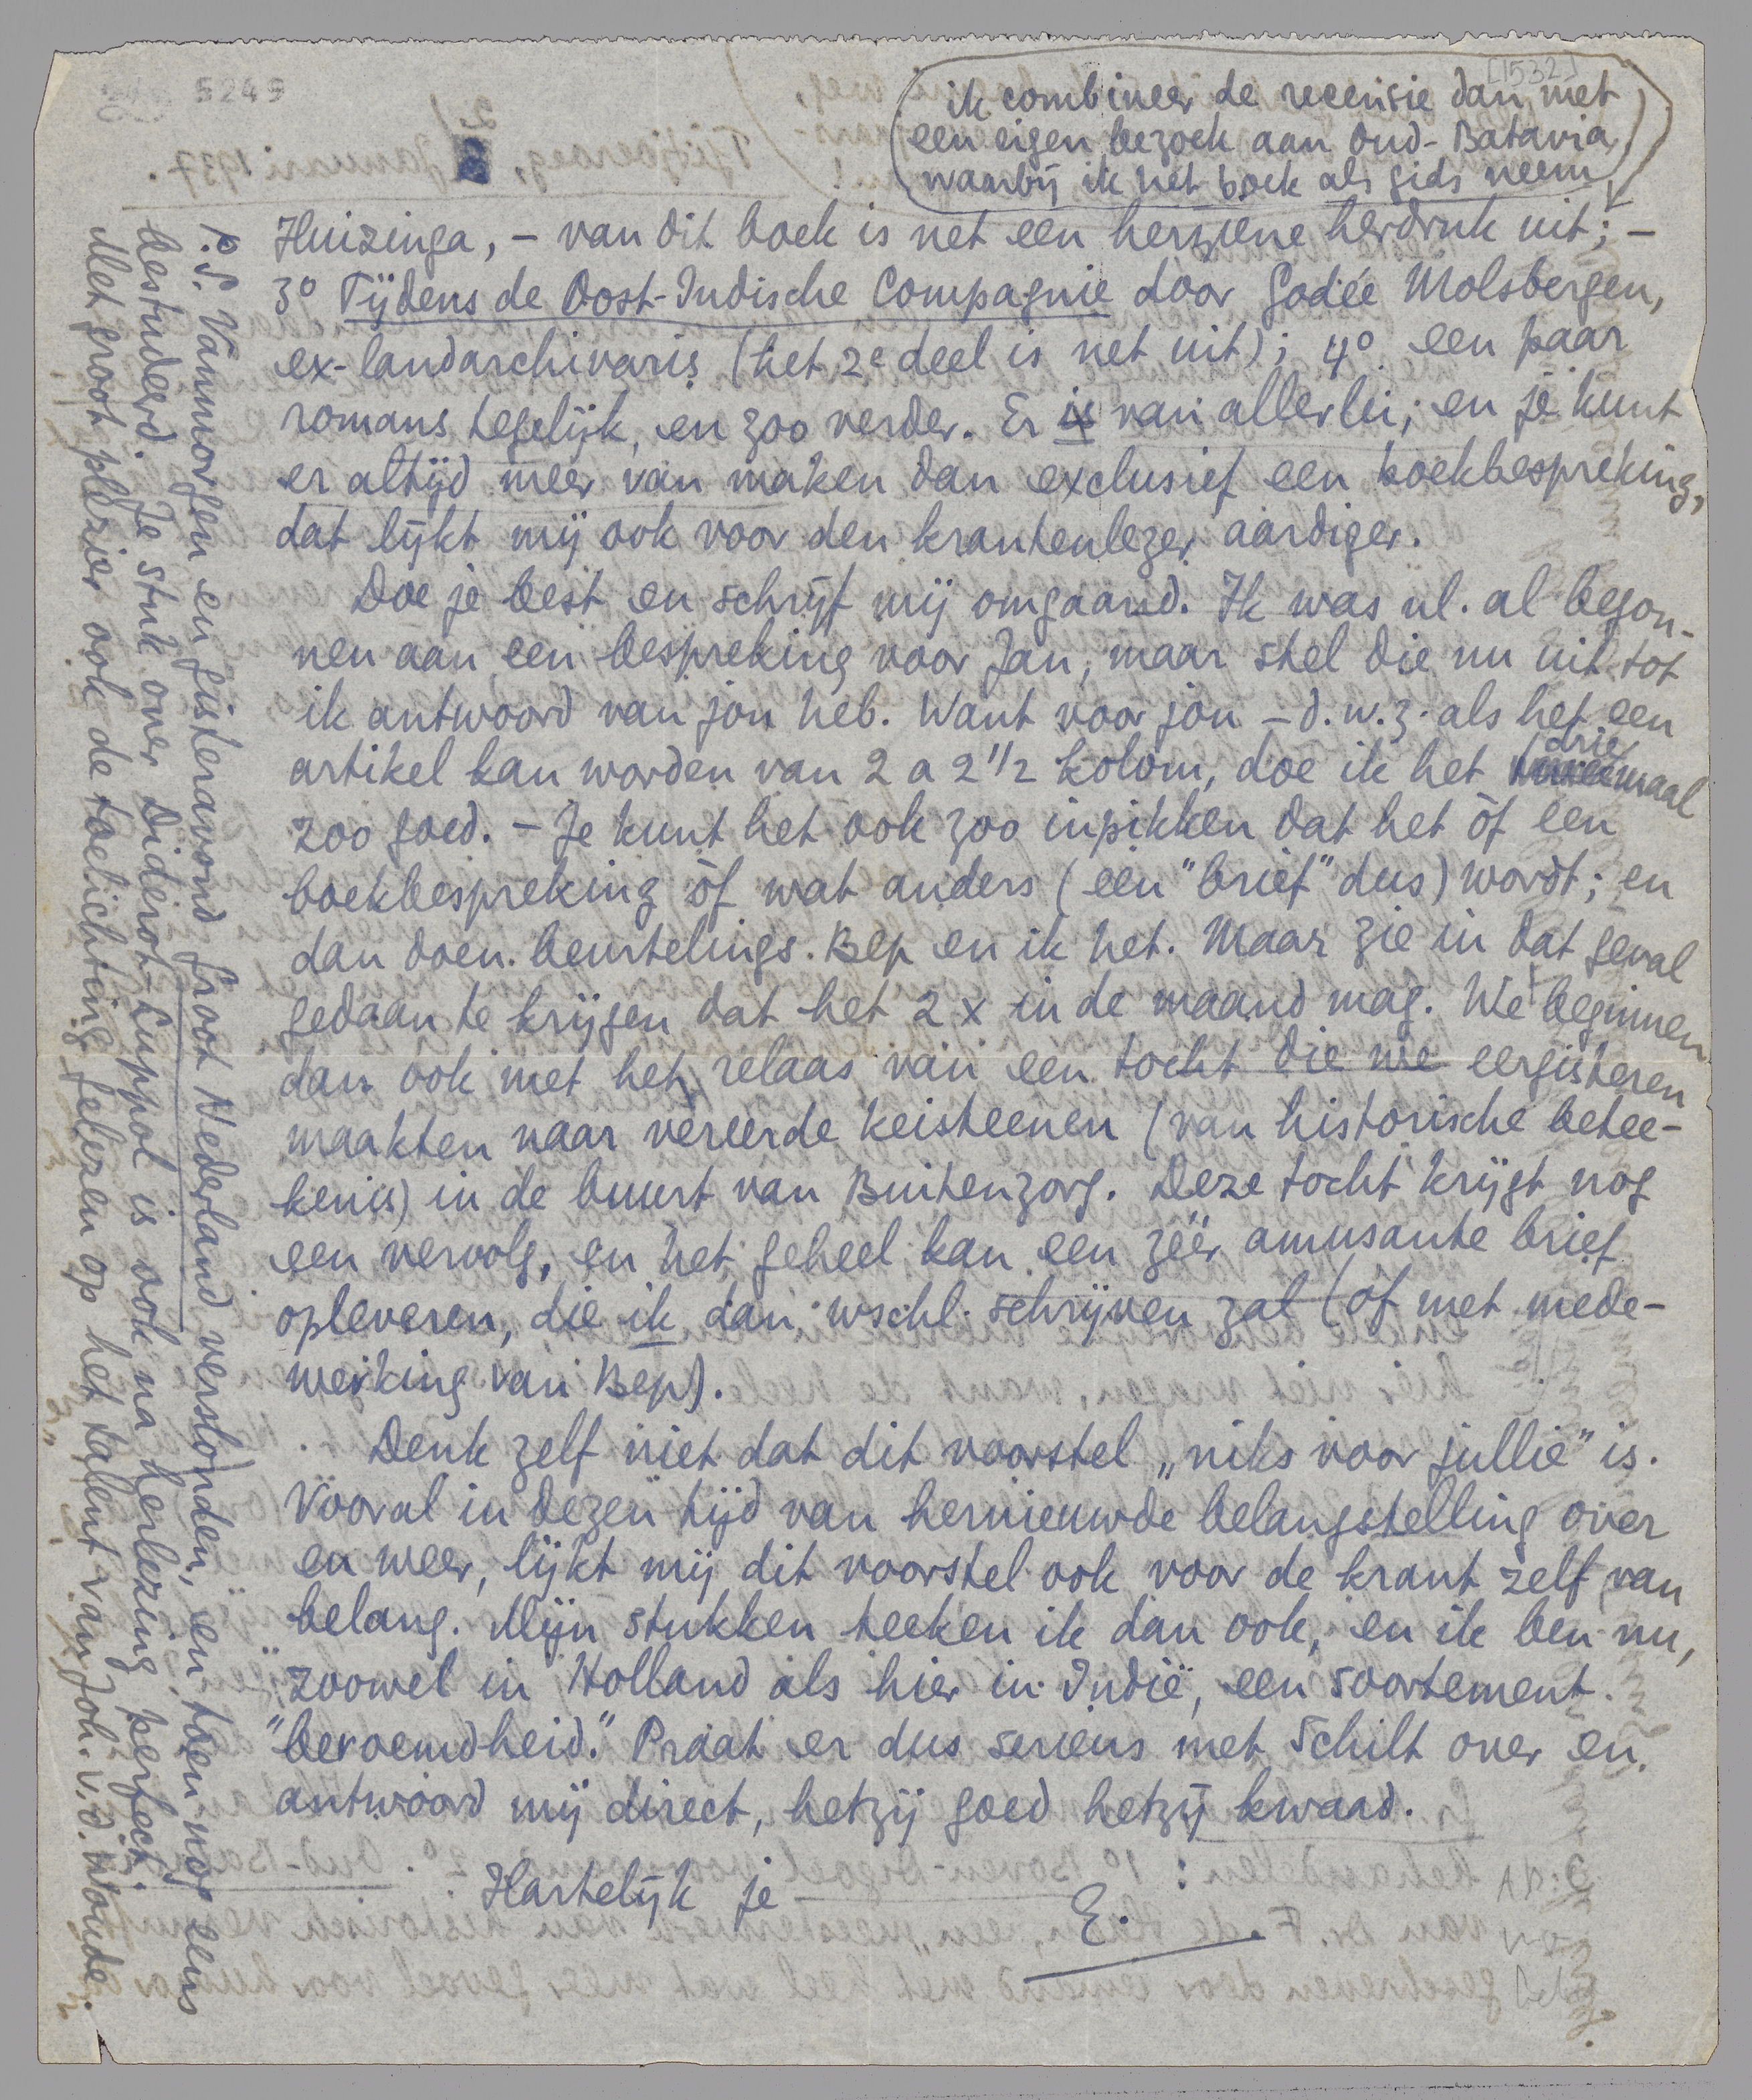 5249
[1532]
ik combineer de recensie dan met
een eigen bezoek aan Oud-Batavia,
waarbij ik het boek als gids neem
Huizinga, – van dit boek is net een herziene herdruk uit; –
3º Tijdens de Oost-Indische Compagnie door Godée Molsbergen,
ex-landarchivaris (het 2e deel is net uit); 4º een paar
romans tegelijk, en zoo verder. Er is van allerlei; en je kunt
er altijd meer van maken dan exclusief een boekbespreking,
dat lijkt mij ook voor den krantenlezer aardiger.
Doe je best en schrijf mij omgaand. Ik was nl. al begon-
nen aan een bespreking voor Jan, maar stel die nu uit tot
ik antwoord van jou heb. Want voor jou – d.w.z. als het een
artikel kan worden van 2 a 2 1/2 kolom, doe ik het driemaal
zoo goed. – Je kunt het ook zoo inpikken dat het òf een
boekbespreking òf wat anders (een "brief" dus) wordt; en
dan doen beurtelings Bep en ik het. Maar zie in dat geval
gedaan te krijgen dat het 2 x in de maand mag. We beginnen
dan ook met het relaas van een tocht die we eergisteren
maakten naar vereerde keisteenen (van historische betee-
kenis) in de buurt van Buitenzorg. Deze tocht krijgt nog
een vervolg, en het geheel kan een zéér amusante brief
opleveren, die ik dan wschl. schrijven zal (of met mede-
werking van Bep).
Denk zelf niet dat dit voorstel „niks voor jullie" is.
Vooral in dezen tijd van hernieuwde belangstelling over
en weer, lijkt mij dit voorstel ook voor de krant zelf van
belang. Mijn stukken teeken ik dan ook, en ik ben nu,
zoowel in Holland als hier in Indië, een soortement
"beroemdheid." Praat er dus serieus met Schilt over en
antwoord mij direct, hetzij goed hetzij kwaad.
Hartelijk je
E.
P.S. Vanmorgen en gisteravond Groot Nederland verslonden, en toen nog eens
bestudeerd. Je stuk over Diderot-Luppol is ook na herlezing perfect.
Met groot plezier ook de toelichting gelezen op het talent van Joh. v.d. Woude.